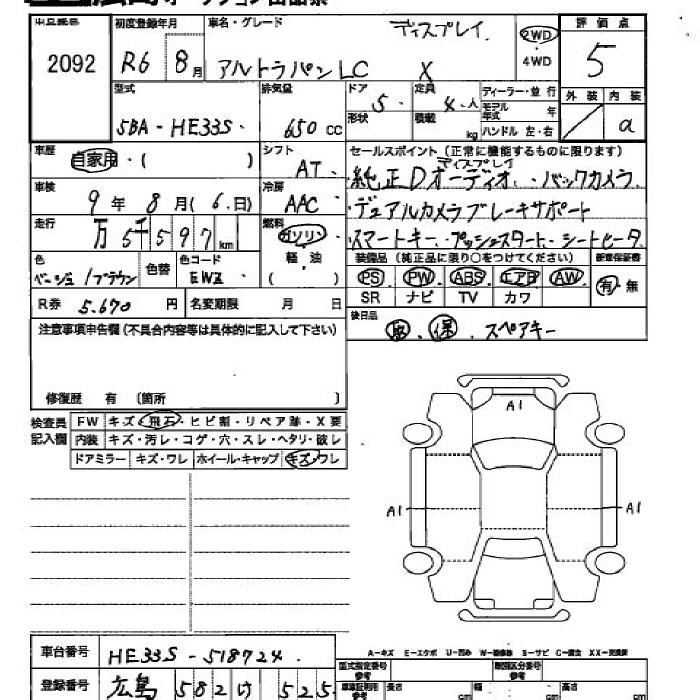 出品番号 初度登録年月 車名・グレード ディスプレイ 2WD 評価点
2092 R6 8月 アルトラパンLC X 4WD 5
型式 排気量 ドア 5. 定員 4.人 ディーラー・並行 外装 内装
5BA-HE33S. 650cc 形状 積載 kg モデル年式 年 ハンドル 左・右 a
車歴 自家用・( ) シフト AT. セールスポイント(正常に機能するものに限ります)
ディスプレイ
・純正Dオーディオ.・バックカメラ
車検 9年8月(6.日) 冷房 AAC ・デュアルカメラブレーキサポート
走行 万5千597km 燃料 ガソリン ・スマートキー.プッシュスタート.シートヒータ
軽・油 装備品(純正品に限り○をつけてください) 新車保証書
色 ベージュ/ブラウン 色替 色コード ( ) PS PW ABS エアB AW 有・無
SR ナビ TV カワ
R券 5.670円 名変期限 月 日
後日品 取.保.スペアキー
注意事項申告欄(不具合内容等は具体的に記入して下さい)
修復歴 有 〔箇所 〕
検査員記入欄 FW キズ・飛石・ヒビ割・リペア跡・X要
内装 キズ・汚レ・コゲ・穴・スレ・ヘタリ・破レ
ドアミラー キズ・ワレ ホイール・キャップ キズ・ワレ
A1
A1 A1
A-キズ E-エクボ U-凹み W-補修跡 S-サビ C-腐食 XX-交換済
車台番号 HE33S-518724 型式指定番号 参考 類別区分番号 参考
登録番号 広島 582 け 525 車車証明用 参考 長さ cm 幅 cm 高さ cm